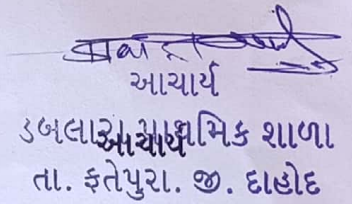 આચાર્ય
ડબલારા પ્રાથમિક શાળા
આચાર્ય
તા. ફતેપુરા. જી. દાહોદ